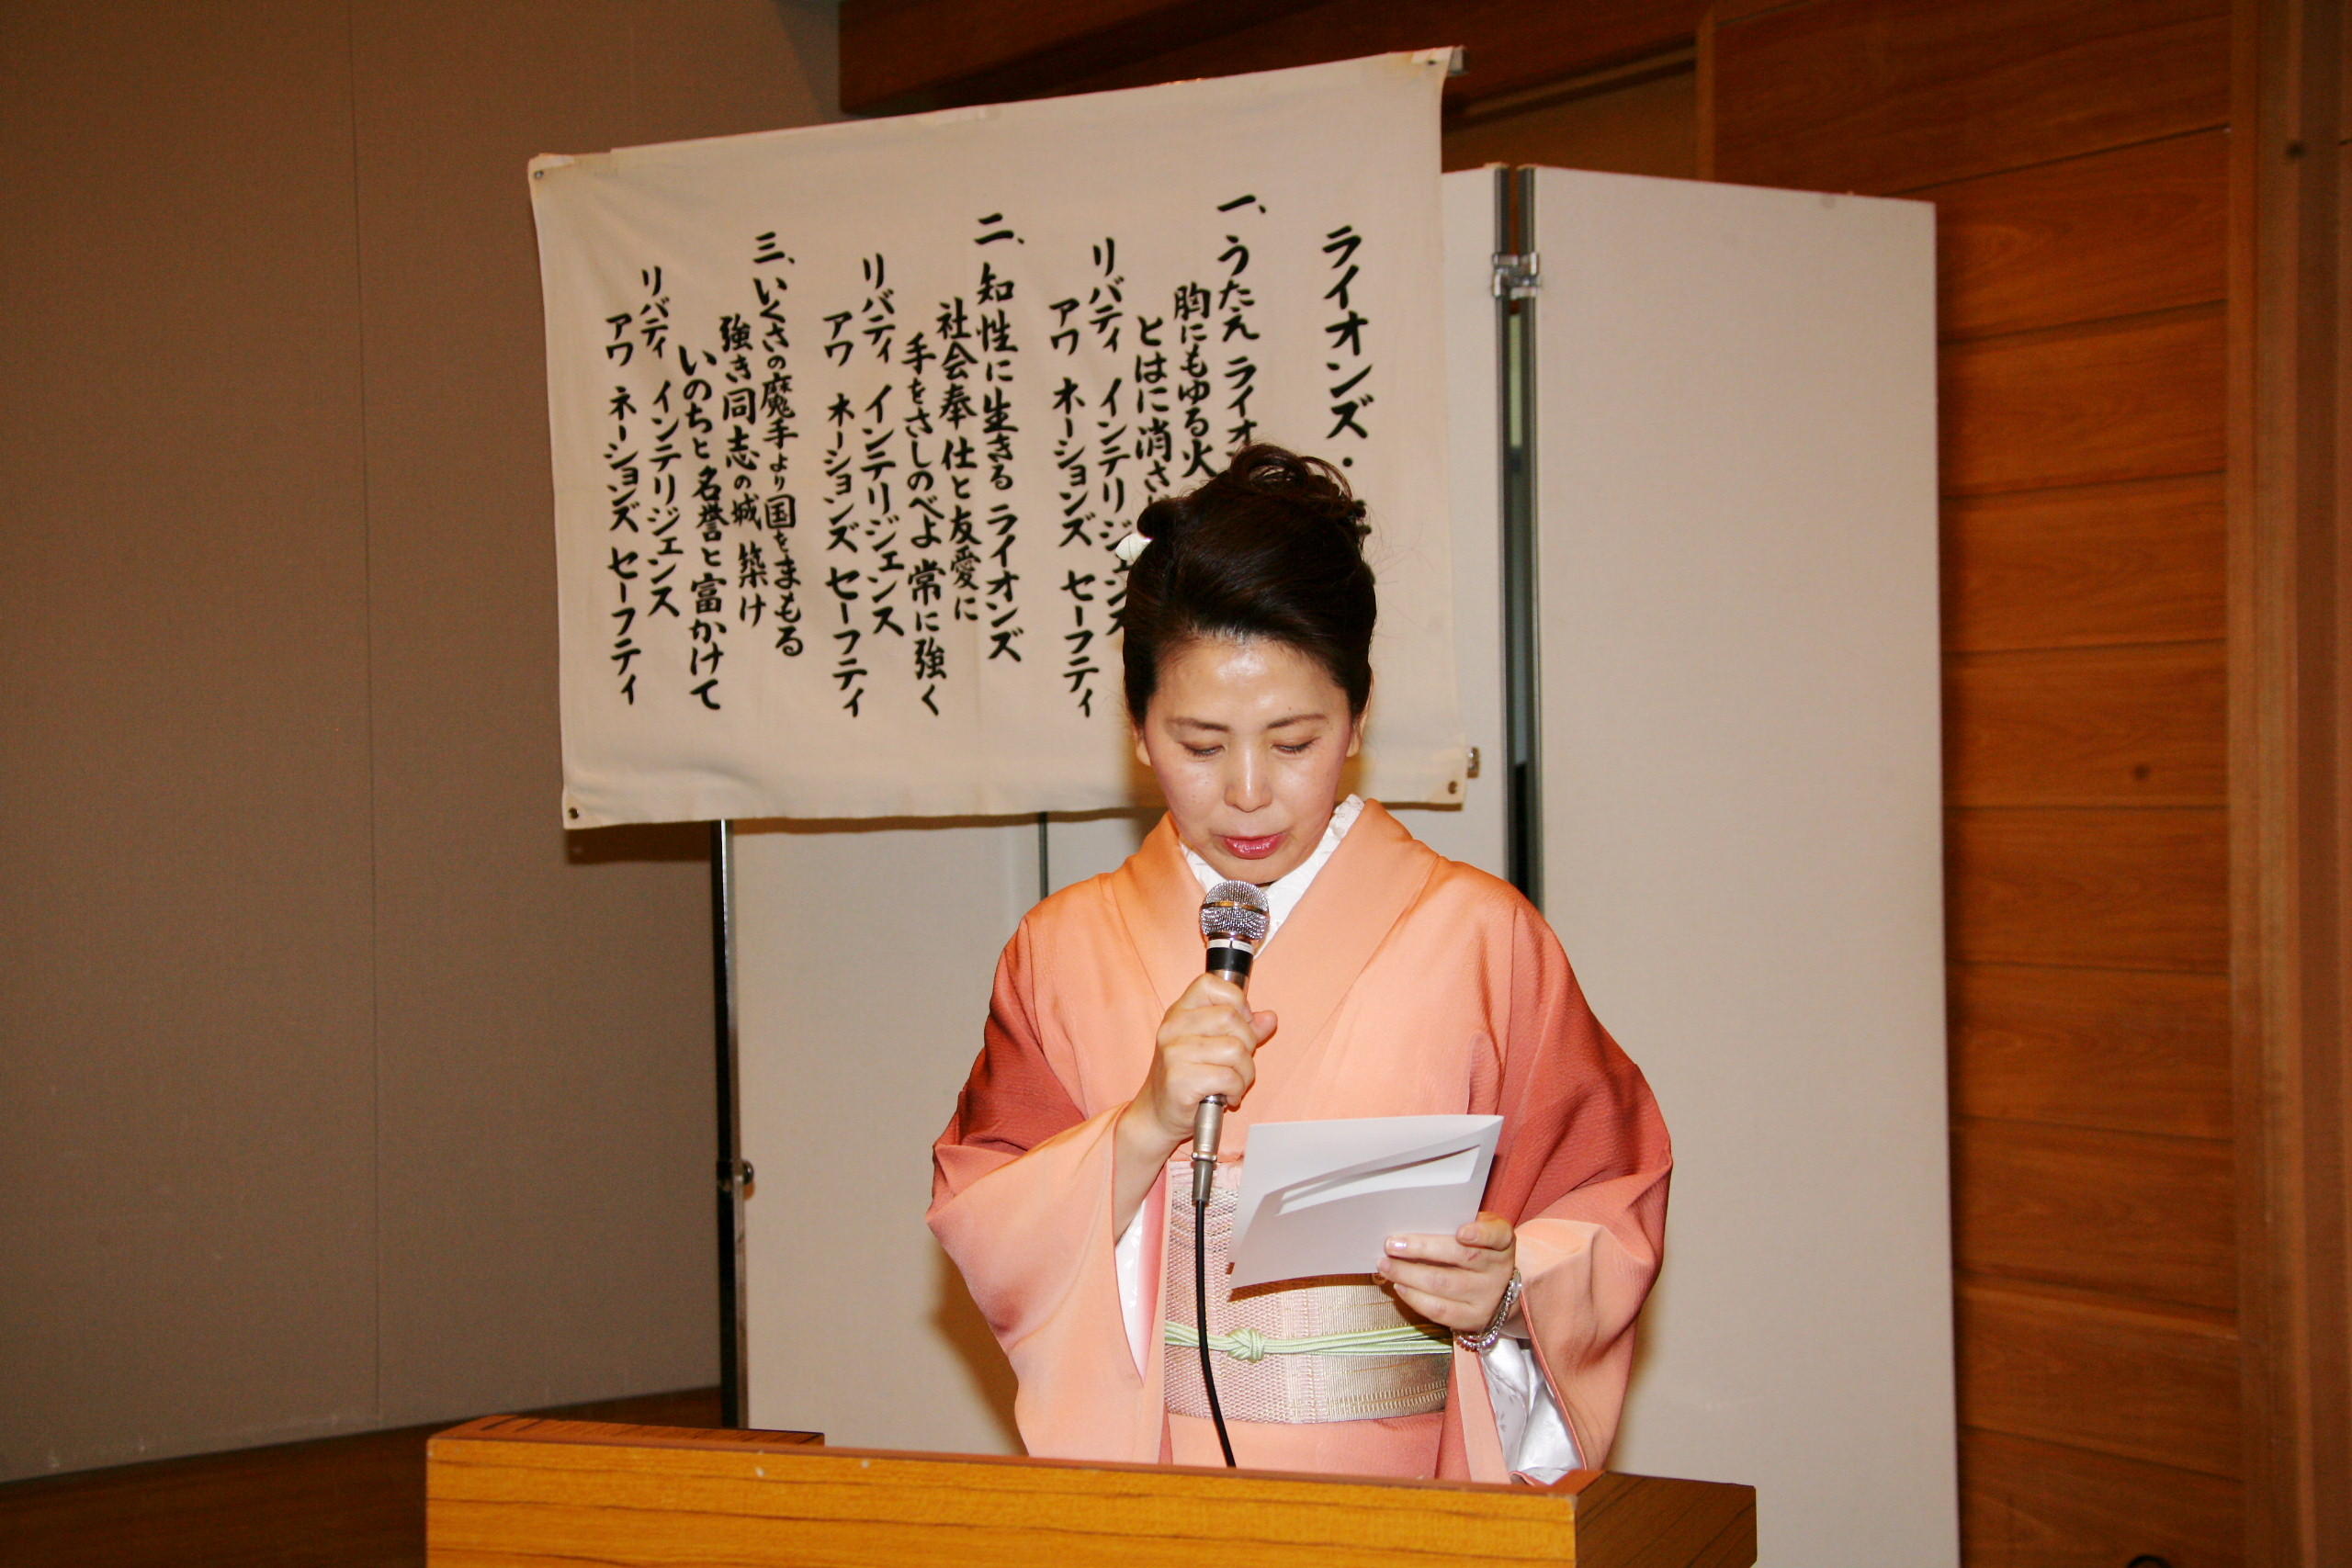 ライオンズ・
一、うたえ ライオ
胸にもゆる火
とはに消さ
リバティ インテリジェンス
アワ ネーションズ セーフティ
二、知性に生きる ライオンズ
社会奉仕と友愛に
手をさしのべよ 常に強く
リバティ インテリジェンス
アワ ネーションズ セーフティ
三、いくさの魔手より国をまもる
強き同志の城 築け
いのちと名誉と富かけて
リバティ インテリジェンス
アワ ネーションズ セーフティ